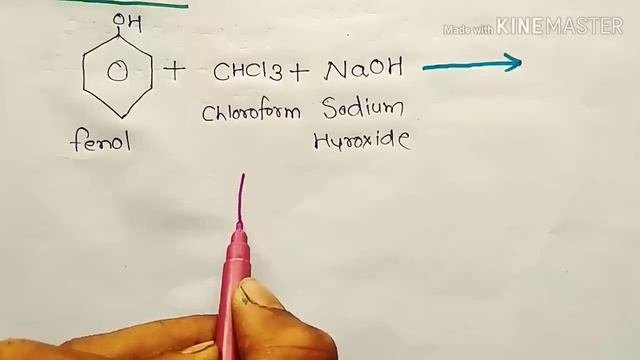 Made with KINEMASTER
OH
+ CHCl3 + NaOH
Chloroform Sodium
fenol Hyroxide